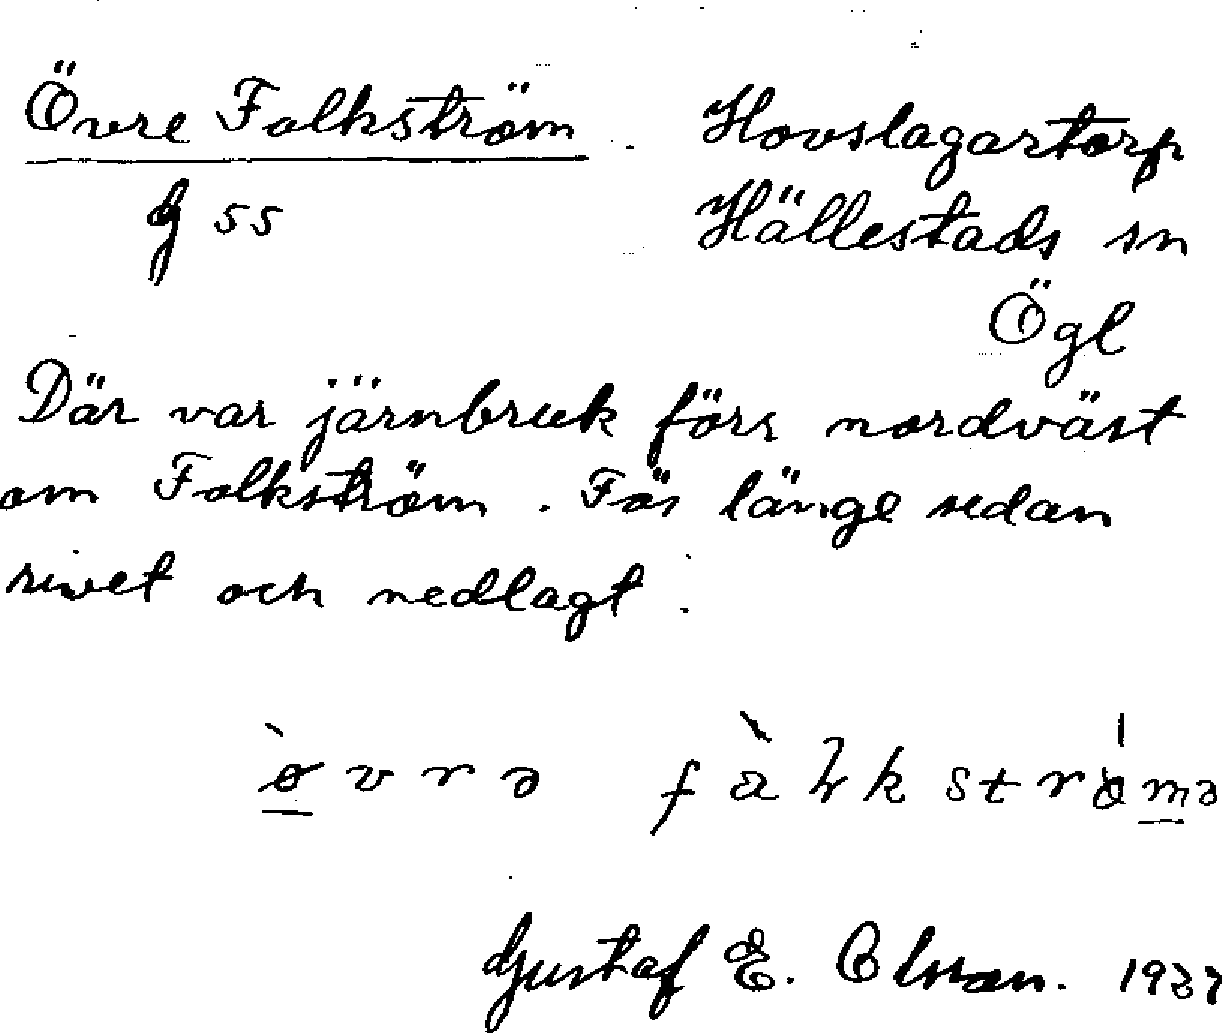 Övre Falkström Hovslagartorp
g 55 Hällestads sn
Ögl
Där var järnbruk förr nordväst
om Falkström. För länge sedan
rivet och nedlagt.
Gustaf E. Olsson. 1937